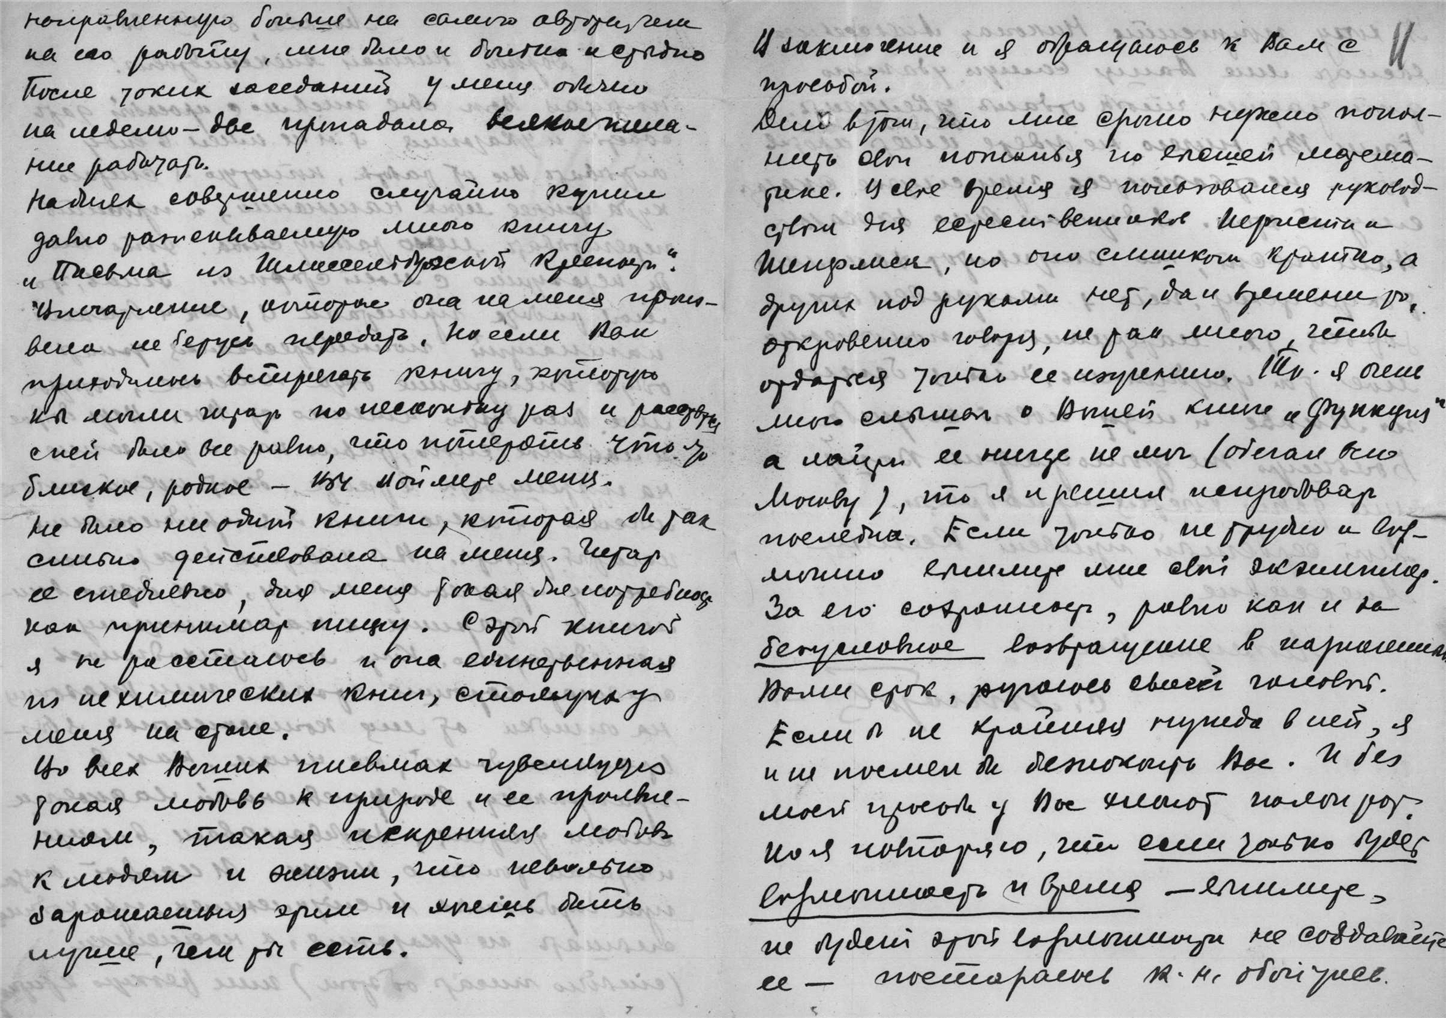 направленную больше на самого автора, чем
на его работу, мне было и больно и стыдно
После таких заседаний у меня обычно
на неделю – две пропадало всякое жела-
ние работать.
На днях совершенно случайно купил
давно разыскиваемую мною книгу
„Письма из Шлиссельбургской крепости".
Впечатление, которое она на меня произ-
вела не берусь передать. Но если Вам
приходилось встречать книгу, которую
Вы могли читать по нескольку раз и расстаться
с ней было все равно, что потерять что-то
близкое, родное – Вы поймете меня.
Не было ни одной книги, которая бы так
сильно действовала на меня. Читать
ее ежедневно, для меня такая же потребность
как принимать пищу. С этой книгой
я не расстаюсь и она единственная
из нехимических книг, стоящих у
меня на столе.
Во всех Ваших письмах чувствуется
такая любовь к природе и ее проявле-
ниям, такая искренняя любовь
к людям и жизни, что невольно
заражаешься этим и хочешь быть
лучше, чем ты есть.
11
В заключение и я обращаюсь к Вам с
просьбой.
Дело в том, что мне срочно нужно попол-
нить свои познанья по высшей матема-
тике. В свое время я пользовался руковод-
ством для естественников Нернста и
Шенфлиса, но оно слишком кратко, а
других под руками нет, да и времени то,
откровенно говоря, не так много, чтобы
отдаться только ее изучению. Т.к. я очень
много слышал о Вашей книге „Функция"
а найти ее нигде не мог (обегал всю
Москву), то я и решил испробовать
последнее. Если только не трудно и воз-
можно вышлите мне свой экземпляр.
За его сохранность, равно как и за
безусловное возвращение в назначенный
Вами срок, ручаюсь своей головой.
Если б не крайняя нужда в ней, я
и не посмел бы безпокоить Вас. И без
моей просьбы у Вас хлопот полон рот.
Но я повторяю, что если только будет
возможность и время – вышлите,
не будет этой возможности не создавайте
ее – постараюсь к.н. обойтись.